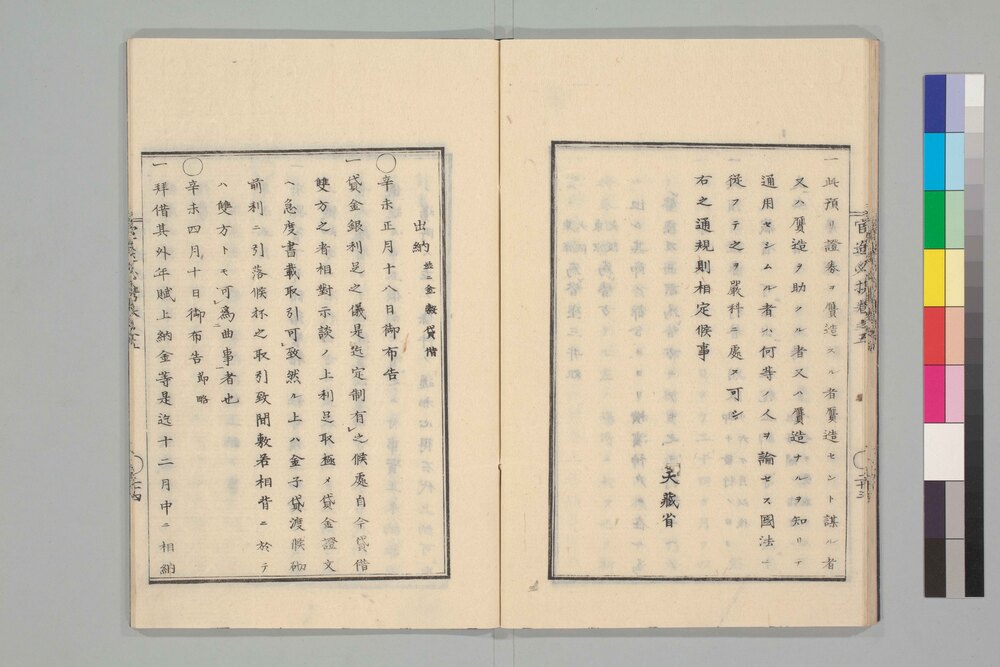 一此預リ證券ヲ贋造スル者贋造セント謀ル者
又ハ贋造ヲ助クル者又ハ贋造ナルヲ知リテ
通用セシムル者ハ何等ノ人ヲ論セス國法ニ
從フテ之ヲ嚴科ニ處ス可シ
右之通規則相定候事
大藏省
出納 並ニ金穀貸借
○辛未正月十八日御布告
一貸金銀利足之儀是迄定制有之候處自今貸借
雙方之者相對示談ノ上利足取極メ貸金證文
ヘ急度書載取引可致然ル上ハ金子貸渡候砌
前利ニ引落候抔之取引致間敷若相背ニ於テ
ハ雙方トモ可為曲事者也
○辛未四月十日御布告 節略
一拜借其外年賦上納金等是迄十二月中ニ相納